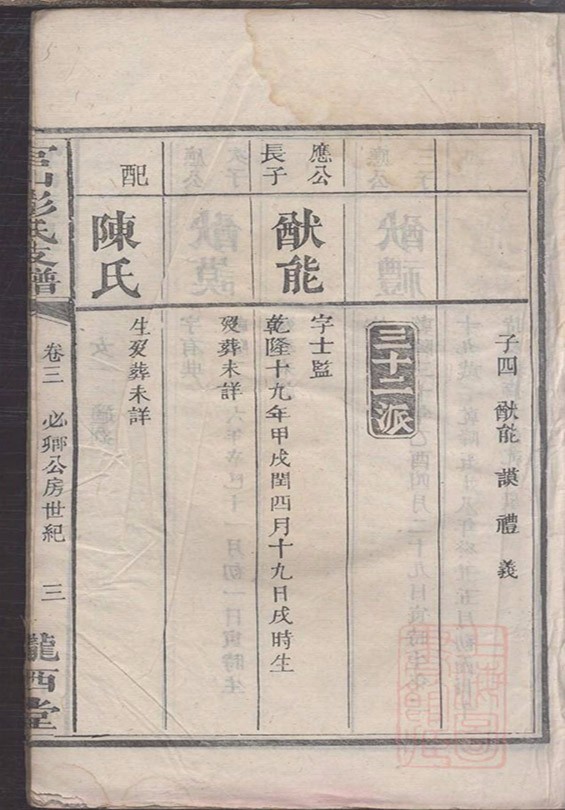 子四 猷能 謨 禮 義
三十二派
應公
長子
猷能
字士監
乾隆十九年甲戌閏四月十九日戌時生
歿葬未詳
配
陳氏
生歿葬未詳
彭氏支譜
卷三 必卿公房世紀 三
隴西堂